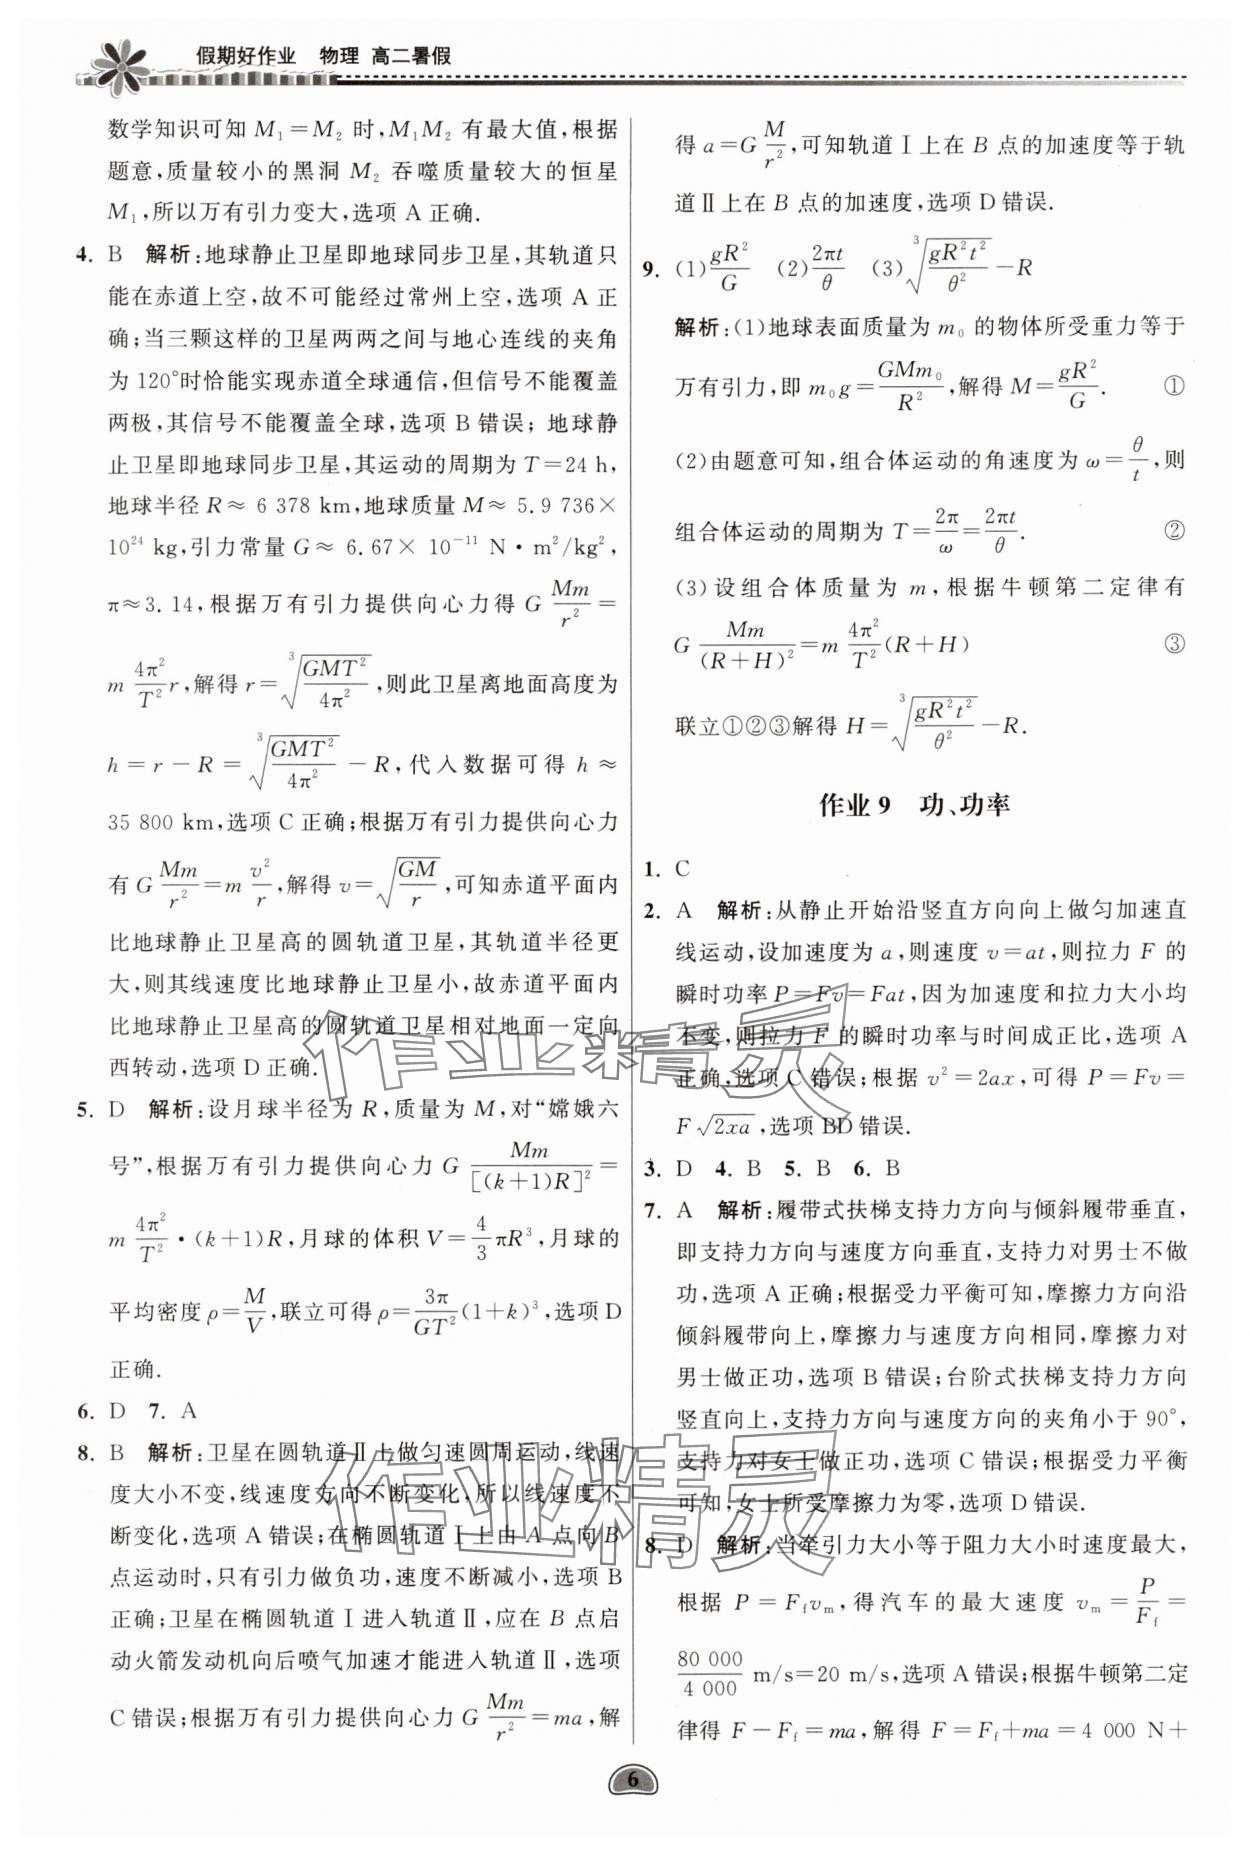 假期好作业 物理 高二暑假
数学知识可知 M₁=M₂ 时,M₁M₂ 有最大值,根据
题意,质量较小的黑洞 M₂ 吞噬质量较大的恒星
M₁,所以万有引力变大,选项 A 正确.
4. B 解析:地球静止卫星即地球同步卫星,其轨道只
能在赤道上空,故不可能经过常州上空,选项 A 正
确;当三颗这样的卫星两两之间与地心连线的夹角
为 120°时恰能实现赤道全球通信,但信号不能覆盖
两极,其信号不能覆盖全球,选项 B 错误; 地球静
止卫星即地球同步卫星,其运动的周期为 T=24 h,
地球半径 R≈ 6 378 km,地球质量 M≈ 5.9 736×
10²⁴ kg,引力常量 G≈ 6.67× 10⁻¹¹ N·m²/kg²,
π≈3.14,根据万有引力提供向心力得 G Mm/r² =
m 4π²/T² r,解得 r=∛(GMT²/4π²),则此卫星离地面高度为
h=r-R=∛(GMT²/4π²)-R,代入数据可得 h≈
35 800 km,选项 C 正确;根据万有引力提供向心力
有 G Mm/r²=m v²/r,解得 v=√(GM/r),可知赤道平面内
比地球静止卫星高的圆轨道卫星,其轨道半径更
大,则其线速度比地球静止卫星小,故赤道平面内
比地球静止卫星高的圆轨道卫星相对地面一定向
西转动,选项 D 正确.
5. D 解析:设月球半径为 R,质量为 M,对“嫦娥六
号”,根据万有引力提供向心力 G Mm/[(k+1)R]² =
m 4π²/T²·(k+1)R,月球的体积 V=4/3 πR³,月球的
平均密度 ρ=M/V,联立可得 ρ=3π/GT² (1+k)³,选项 D
正确.
6. D 7. A
8. B 解析:卫星在圆轨道Ⅱ上做匀速圆周运动,线速
度大小不变,线速度方向不断变化,所以线速度不
断变化,选项 A 错误;在椭圆轨道Ⅰ上由 A 点向 B
点运动时,只有引力做负功,速度不断减小,选项 B
正确;卫星在椭圆轨道Ⅰ进入轨道Ⅱ,应在 B 点启
动火箭发动机向后喷气加速才能进入轨道Ⅱ,选项
C 错误;根据万有引力提供向心力 G Mm/r²=ma,解
得 a=G M/r²,可知轨道Ⅰ上在 B 点的加速度等于轨
道Ⅱ上在 B 点的加速度,选项 D 错误.
9. (1) gR²/G (2) 2πt/θ (3) ∛(gR²t²/θ²)-R
解析:(1)地球表面质量为 m₀ 的物体所受重力等于
万有引力,即 m₀g=GMm₀/R²,解得 M=gR²/G. ①
(2)由题意可知,组合体运动的角速度为 ω=θ/t,则
组合体运动的周期为 T=2π/ω=2πt/θ. ②
(3)设组合体质量为 m,根据牛顿第二定律有
G Mm/(R+H)²=m 4π²/T² (R+H) ③
联立①②③解得 H=∛(gR²t²/θ²)-R.
作业 9 功、功率
1. C
2. A 解析:从静止开始沿竖直方向向上做匀加速直
线运动,设加速度为 a,则速度 v=at,则拉力 F 的
瞬时功率 P=Fv=Fat,因为加速度和拉力大小均
不变,则拉力 F 的瞬时功率与时间成正比,选项 A
正确,选项 C 错误;根据 v²=2ax,可得 P=Fv=
F√2xa,选项 BD 错误.
3. D 4. B 5. B 6. B
7. A 解析:履带式扶梯支持力方向与倾斜履带垂直,
即支持力方向与速度方向垂直,支持力对男士不做
功,选项 A 正确;根据受力平衡可知,摩擦力方向沿
倾斜履带向上,摩擦力与速度方向相同,摩擦力对
男士做正功,选项 B 错误;台阶式扶梯支持力方向
竖直向上,支持力方向与速度方向的夹角小于 90°,
支持力对女士做正功,选项 C 错误;根据受力平衡
可知,女士所受摩擦力为零,选项 D 错误.
8. D 解析:当牵引力大小等于阻力大小时速度最大,
根据 P=F_f v_m,得汽车的最大速度 v_m=P/F_f=
80 000/4 000 m/s=20 m/s,选项 A 错误;根据牛顿第二定
律得 F-F_f=ma,解得 F=F_f+ma=4 000 N+
作业精灵
作业精灵
6